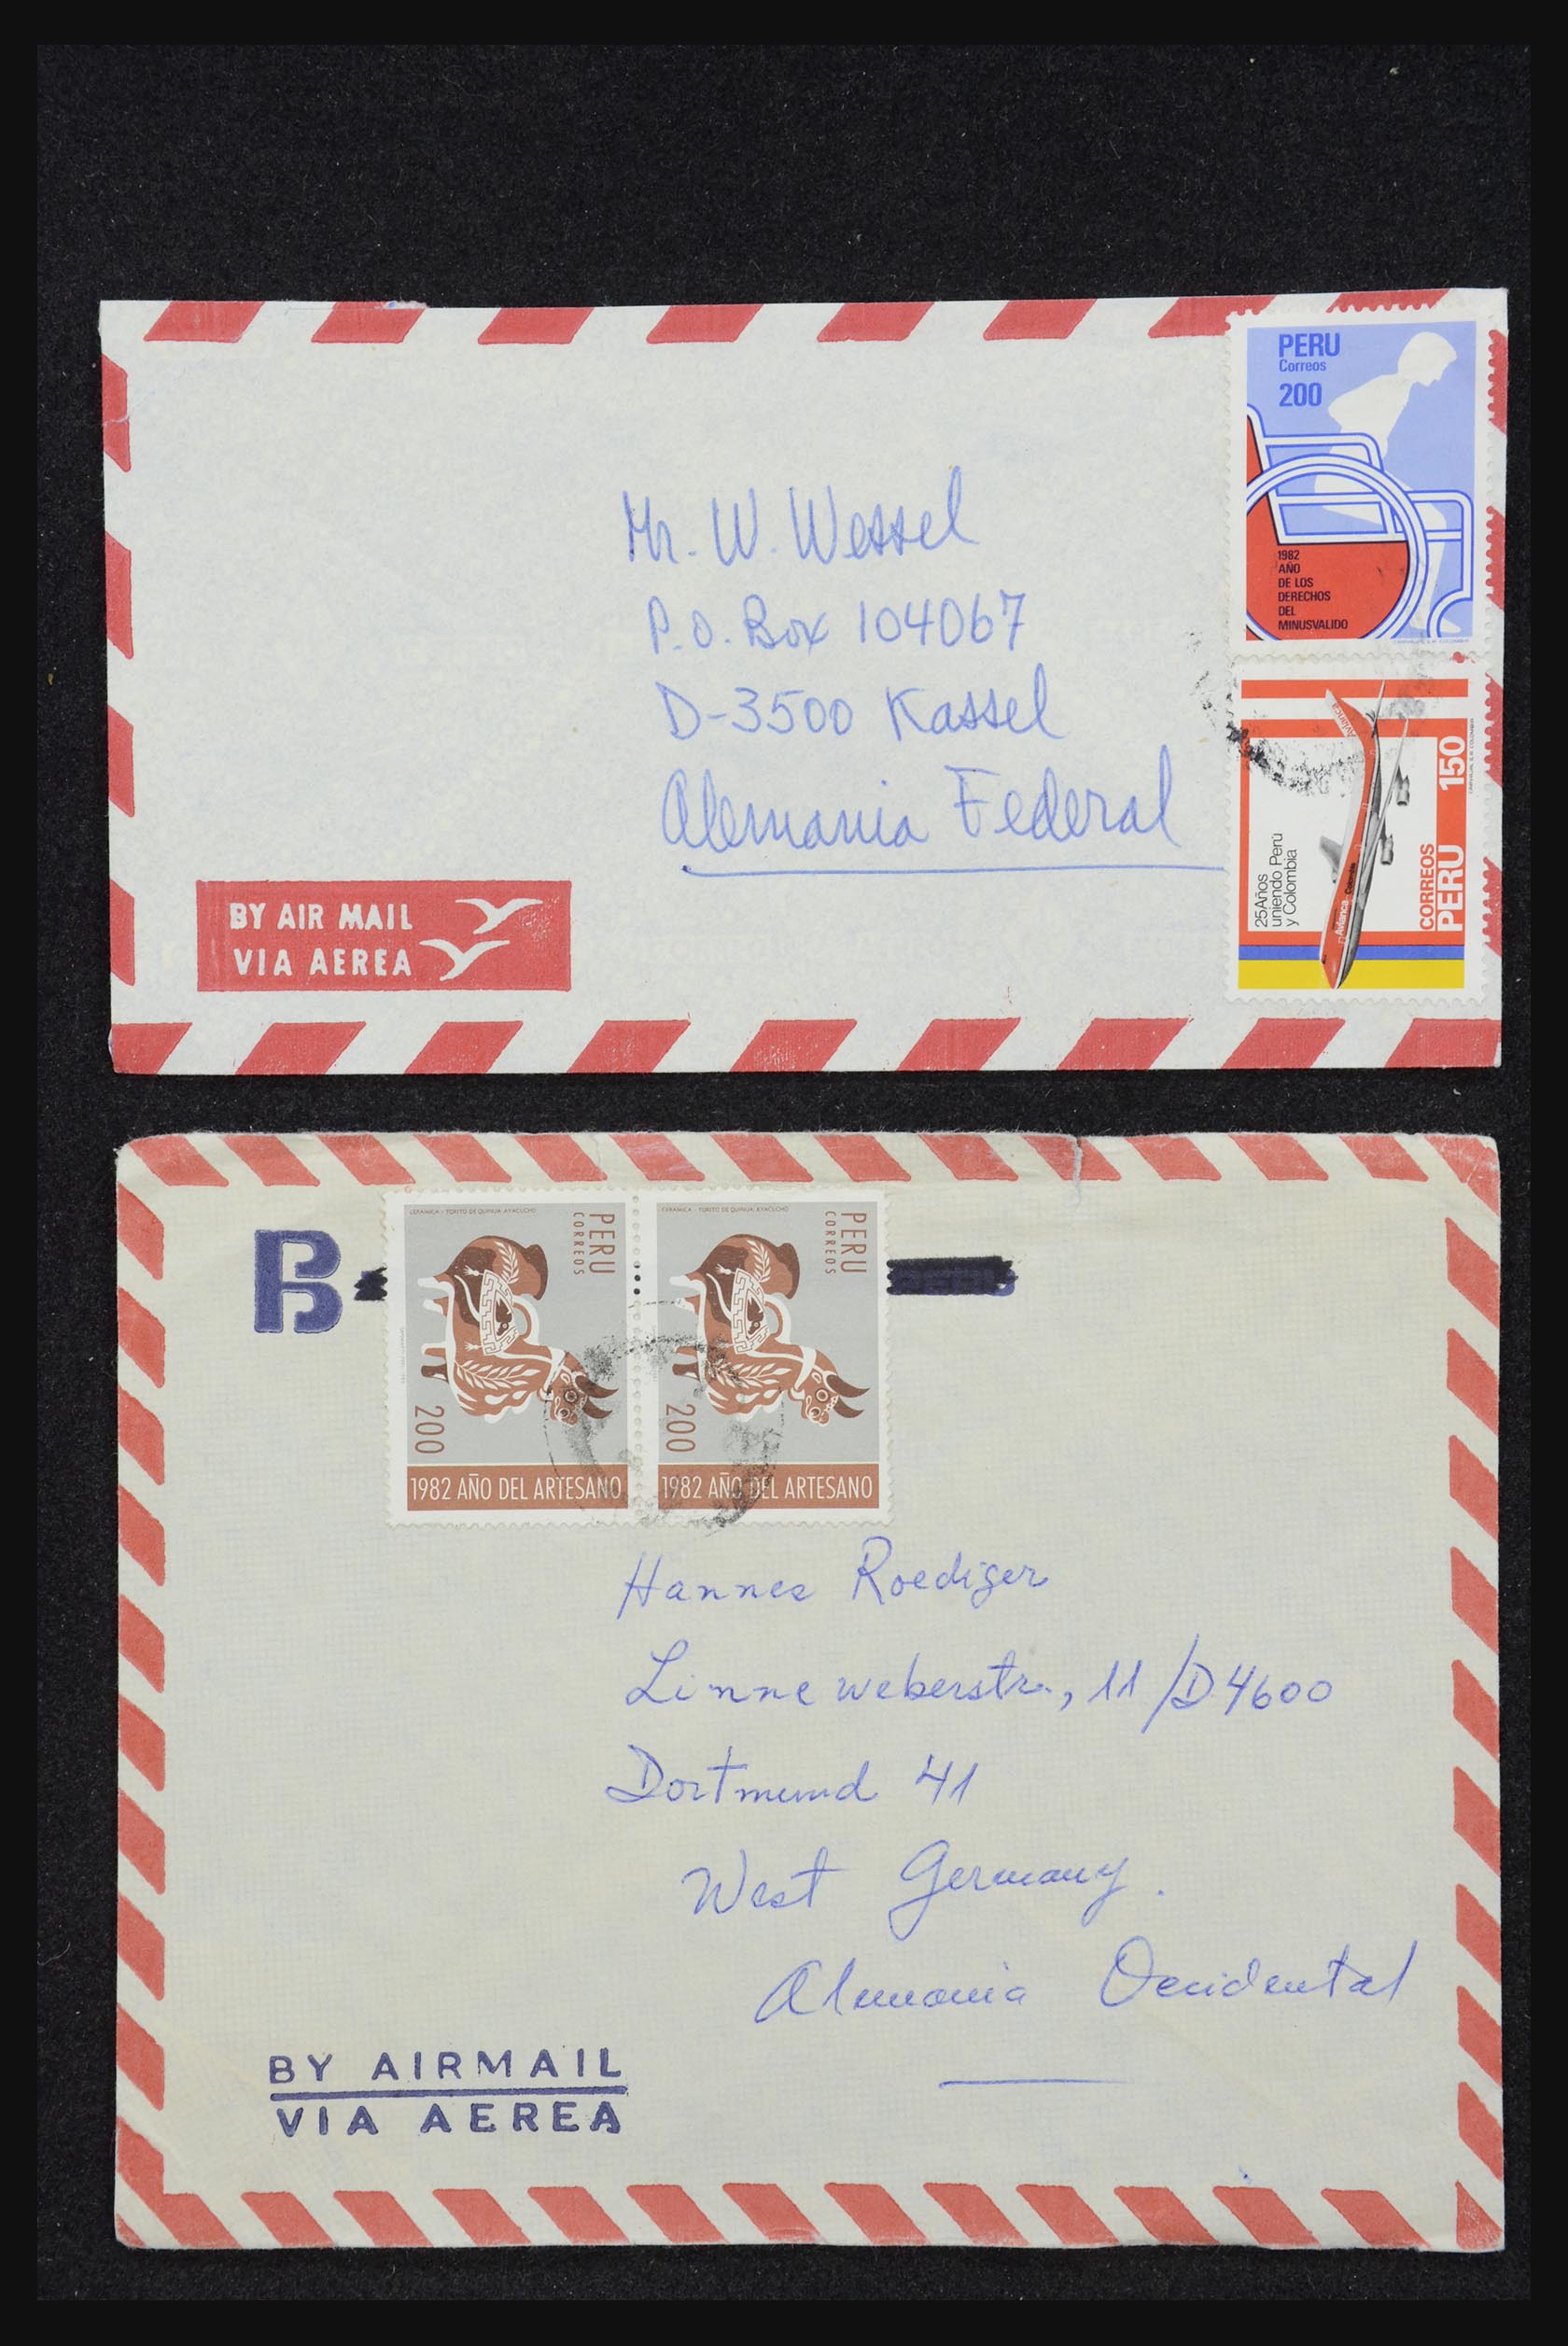 PERU
Correos
200
1982
AÑO
DE LOS
DERECHOS
DEL
MINUSVALIDO
Mr. W. Wessel
P.O. Box 104067
D-3500 Kassel
Alemania Federal
25 Años
uniendo Perú
y Colombia
Avianca
Avianca Colombia
CORREOS
PERU 150
BY AIR MAIL
VIA AEREA
B
CERAMICA - TORITO DE QUINUA AYACUCHO
PERU
CORREOS
200
1982 AÑO DEL ARTESANO
CERAMICA - TORITO DE QUINUA AYACUCHO
PERU
CORREOS
200
1982 AÑO DEL ARTESANO
Hannes Roediger
Linneweberstr., 11/D4600
Dortmund 41
West Germany.
Alemania Occidental
BY AIRMAIL
VIA AEREA